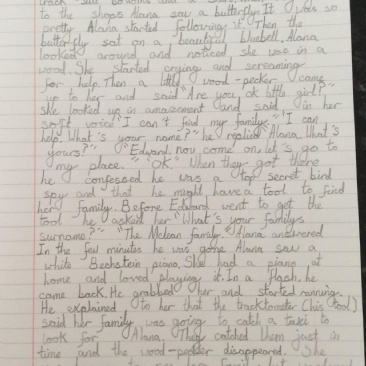 to the shops Alana saw a butterfly. It was so
pretty Alana started following it. Then the
butterfly sat on a beautiful bluebell. Alana
looked around and noticed she was in a
wood. She started crying and screaming
for help. Then a little wood-pecker came
up to her and said "Are you ok little girl?"
she looked up in amazement and said in her
soft voice "I can't find my family." "I can
help. What's your name?" he replied "Alana, What's
yours?" "Edward, now come on, let's go to
my place." "OK." When they got there
he confessed he was a top secret bird
spy and that he might have a tool to find
her family. Before Edward went to get the
tool he asked her "What's your familys
surname?" "The Mclean family." Alana answered
In the few minutes he was gone Alana saw a
white Bechstein piano. She had a piano at
home and loved playing it. In a flash, he
came back. He grabbed her and started running.
He explained to her that the tracktometer (his tool)
said her family was going to catch a taxi to
look for Alana. They catched them just in
time and the wood-pecker disappeared. She